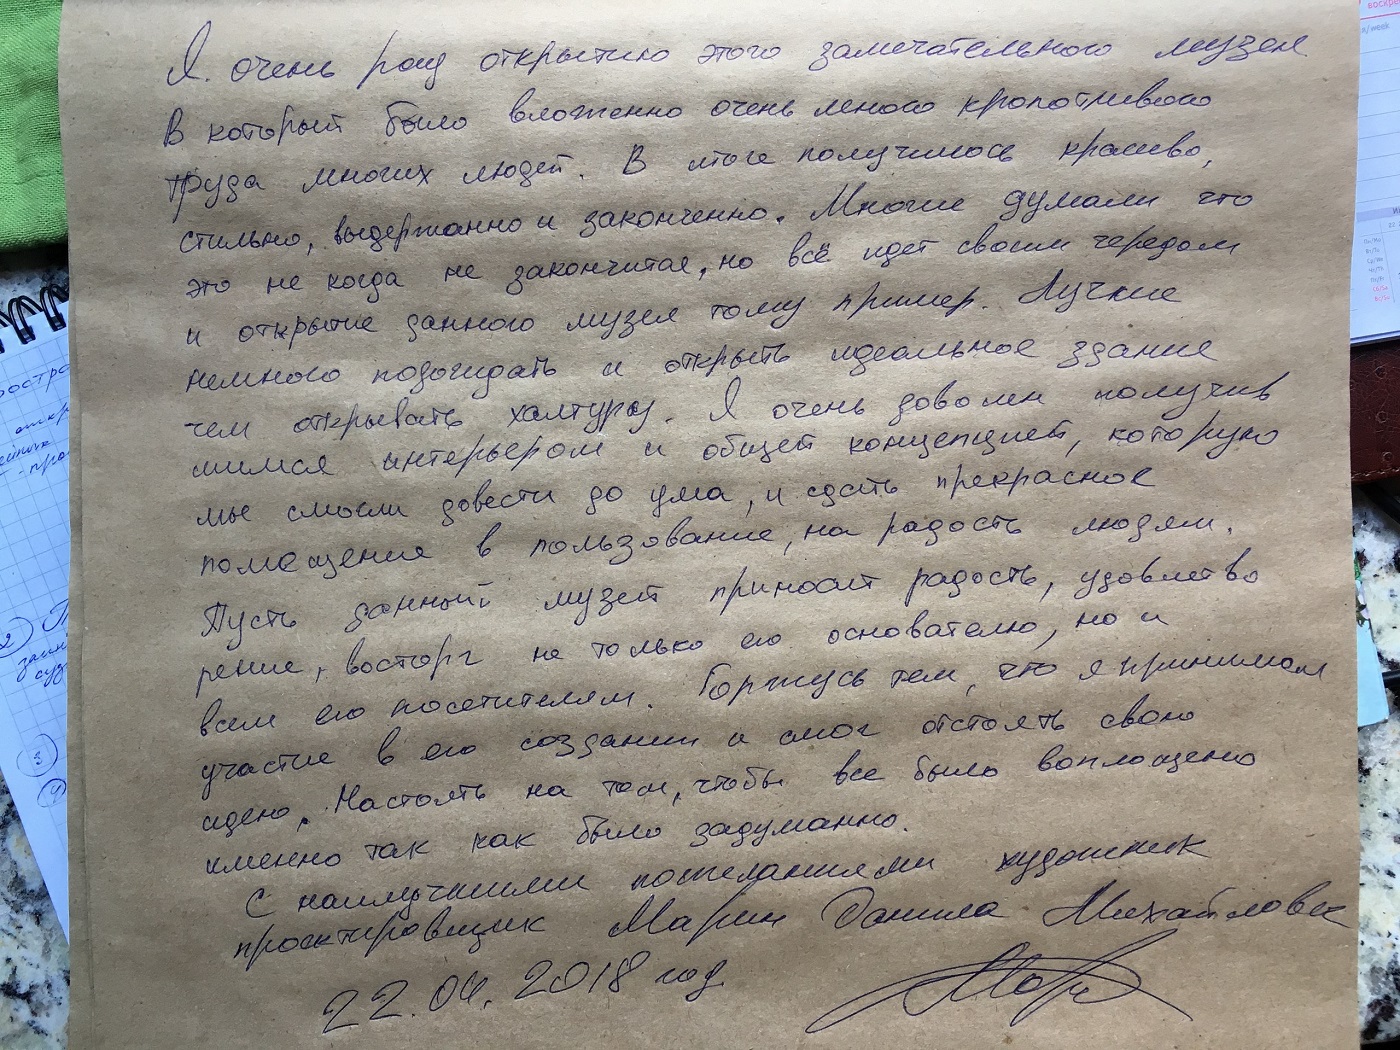 Я. очень рад открытию этого замечательного музея
в который было вложенно очень много кропотливого
труда многих людей. В итоге получилось красиво,
стильно, выдержанно и законченно. Многие думали что
это не когда не закончится, но всё идет своим чередом
и открытие данного музея тому пример. Лучше
немного подождать и открыть идеальное здание
чем открывать халтуру. Я очень доволен получив
шимся интерьером и общей концепцией, которую
мы смогли довести до ума, и сдать прекрасное
помещение в пользование, на радость людям.
Пусть данный музей приносит радость, удовлетво
рение, восторг не только его основателю, но и
всем его посетителям. Горжусь тем, что я принимал
участие в его создании и смог отстоять свою
идею. Настоять на том, чтобы все было воплощено
именно так как было задуманно.
С наилучшими пожеланиями художник
проектировщик Марин Данила Михайлович
22.04.2018 год
восщре
/week
остра
откр
2)
3
4